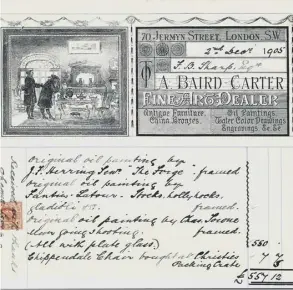 70 JERMYN STREET, LONDON, S.W.
2nd Decr 1905
F. B. Tharp, Esqr
To A. BAIRD CARTER
FINE ART DEALER
Antique Furniture, Oil Paintings
China Bronzes. Water Color Drawings
Engravings, &c. &c
Original oil painting by
J. F. Herring Senr. The Forge framed
Original oil painting by
Fantin-Latour. Stocks, hollyhocks,
gladioli framed.
Original oil painting by Chas.
going shooting. framed.
(All with plate glass) 550
Chippendale Chair bought at Christies 7 7
Packing Crate 5
£557 12